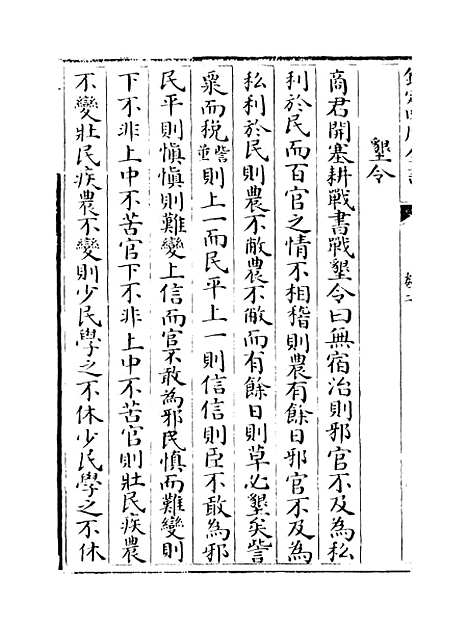 墾令
商君開塞耕戰書戰墾令曰無宿治則邪官不及為私
利於民而百官之情不相稽則農有餘日邪官不及為
私利於民則農不敝農不敝而有餘日則草必墾矣訾
粟而税訾則上一而民平上一則信信則臣不敢為邪
民平則慎慎則難變上信而官不敢為邪民慎而難變則
下不非上中不苦官下不非上中不苦官則壯民疾農
不變壯民疾農不變則少民學之不休少民學之不休